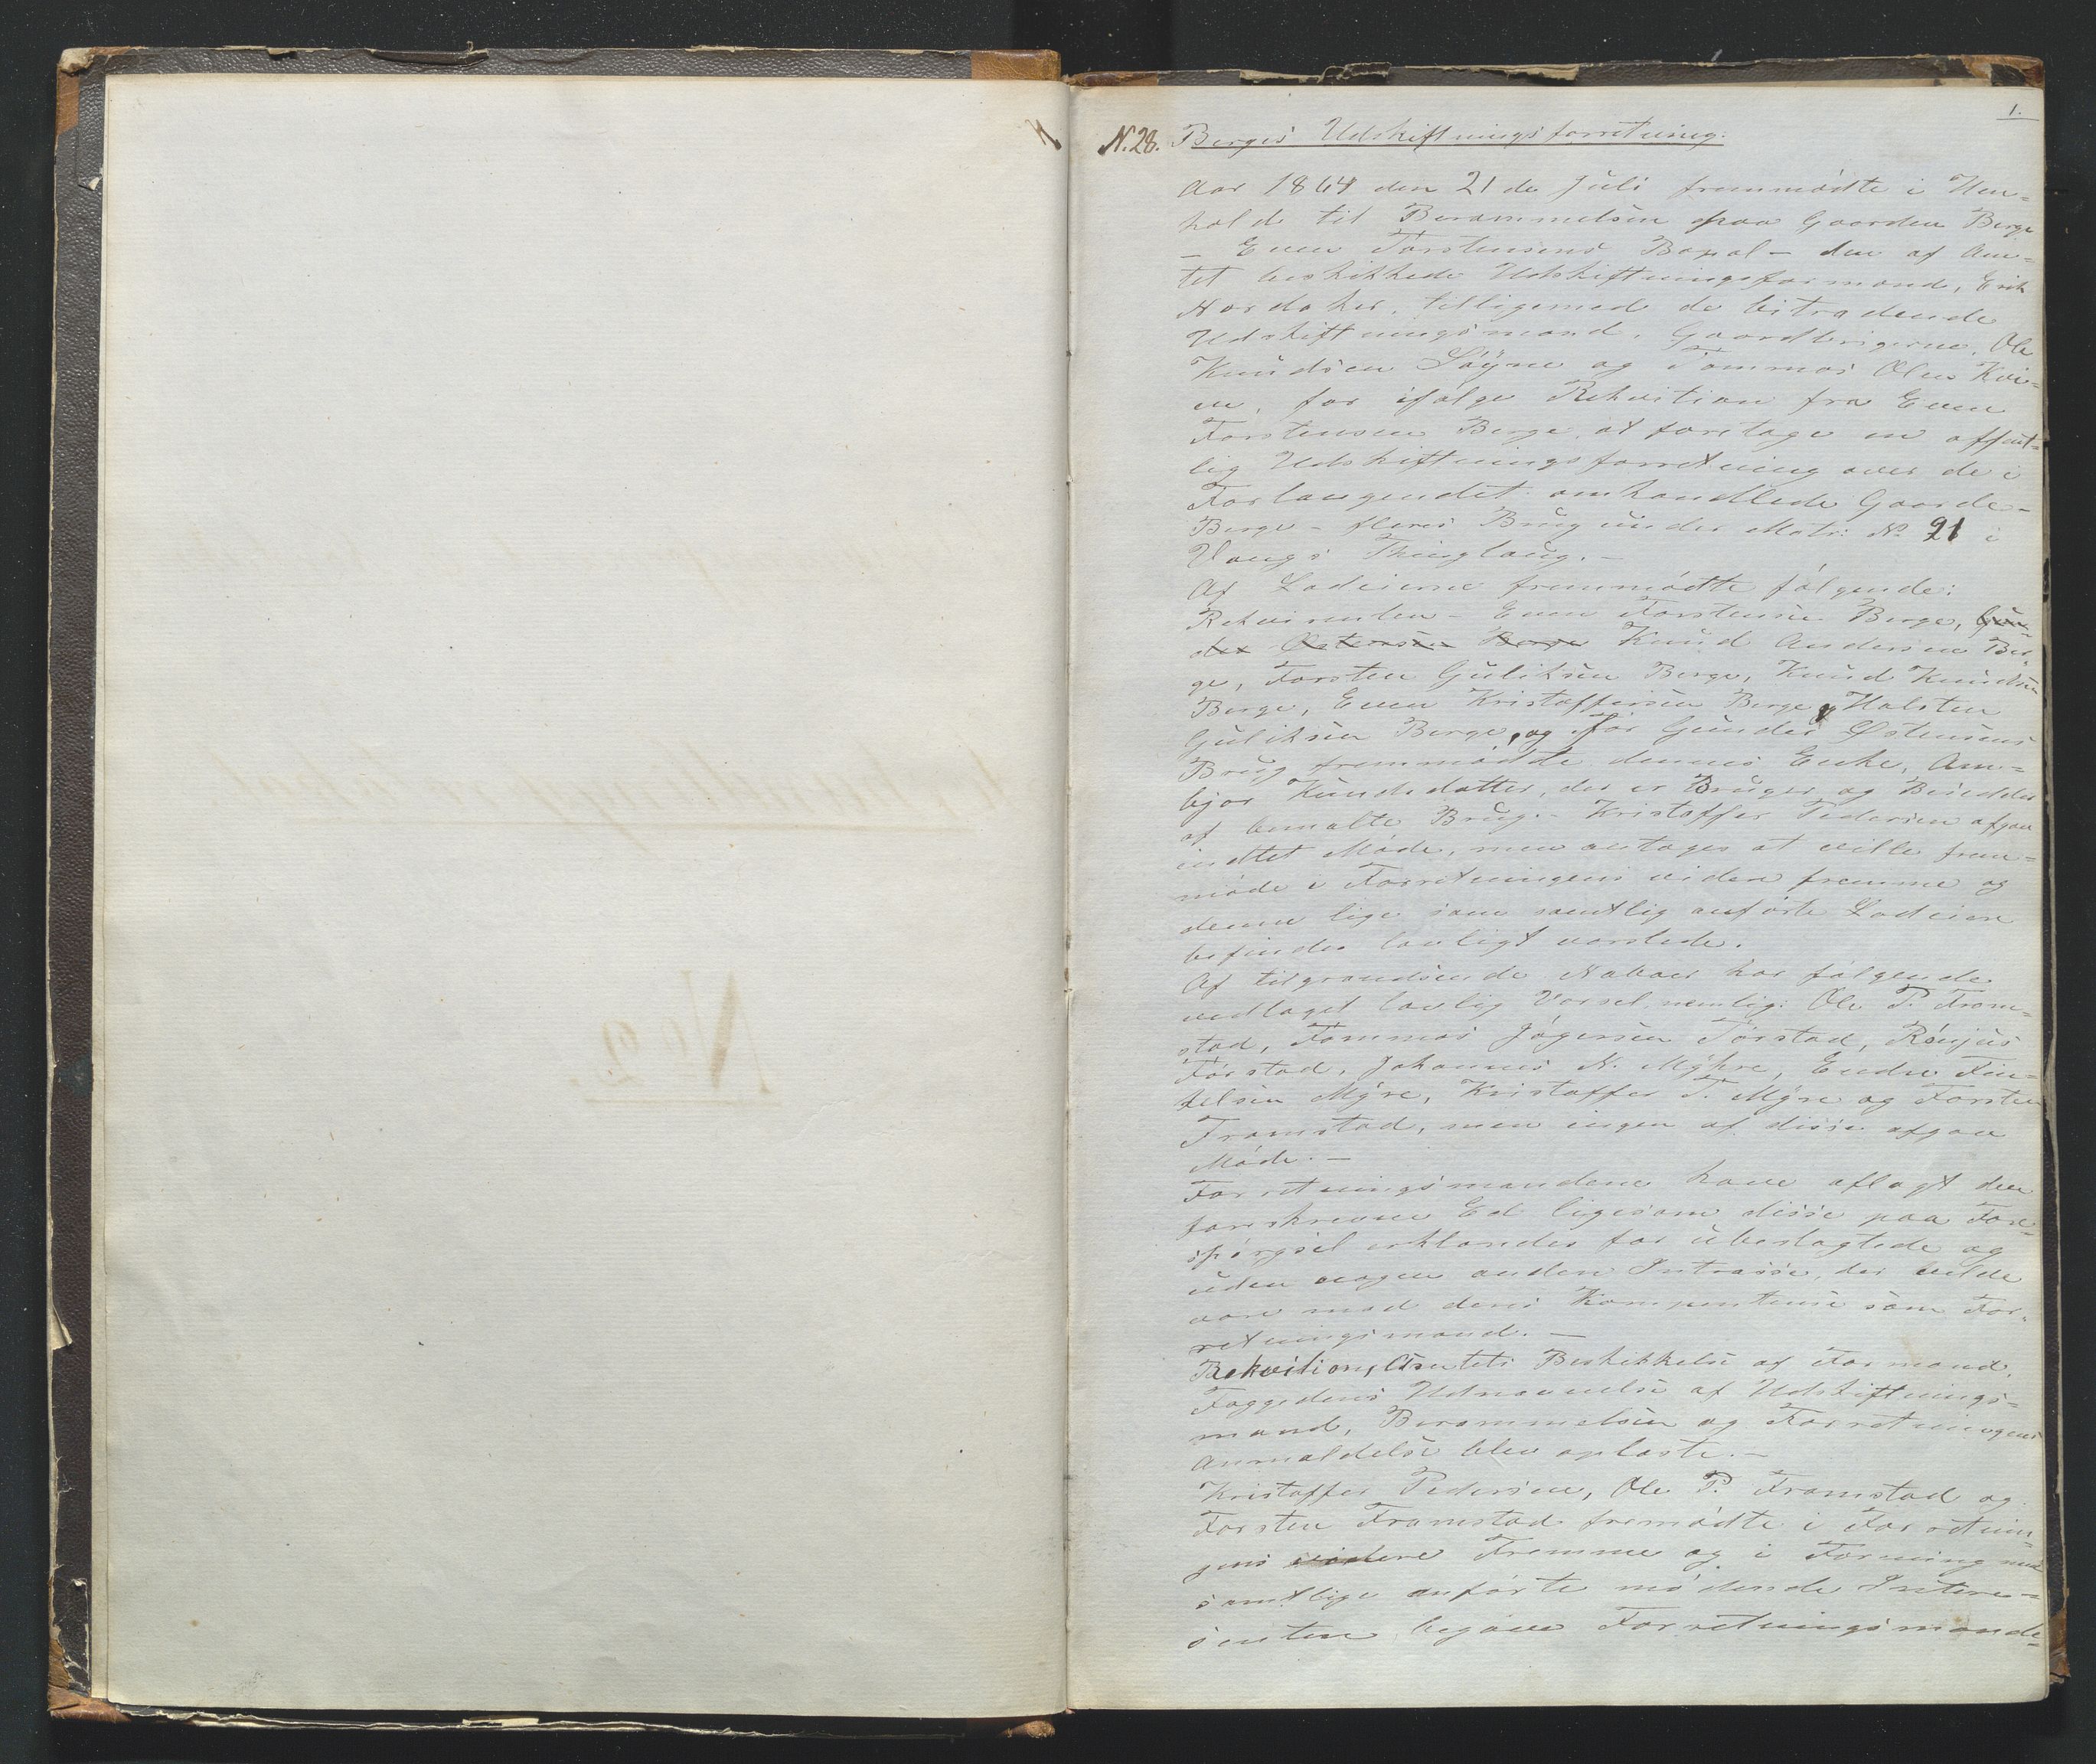 1.
N. 28. Berges Udskiftningsforretning.
Aar 1864 den 21de Juli fremmødte i Hen=
hold til Berammelsen paa Gaarden Berge
– Even Torstensens Bopæl – den af Am=
tet beskikkede Udskiftningsformand, Erik
Nordaker, tilligemed de bitrædende
Udskiftningsmænd, Gaardbrugerne, Ole
Knudsen Søyne og Tommas Olsen Kvi=
en, for ifølge Rekvition fra Even
Torstensen Berge, at foretage en offent=
lig Udskiftningsforretning over de i
Forlangendet omhandlede Gaarde –
Berge – fleres Brug under Matr: No 21 i
Vangs Thinglaug. –
Af Lodeierne fremmødte følgende:
Rekvirenten – Even Torstensen Berge, Gun=
der Østensen Berge Knud Andersen Ber=
ge, Torsten Guliksen Berge, Knud Knudsen
Berge, Even Kristoffersen Berge, Halsten
Guliksen Berge, og for Gunder Østensens
Brug fremmødte dennes Enke, Am=
bjør Knudsdatter, der er Bruger og Besidder
af bemælte Brug. – Kristoffer Pedersen afgav
indtet Møde, men antages at ville frem=
møde i Forretningens videre fremme og
denne lige som samtlig anførte Lodeiere
befindes lovligt varslede.
Af tilgrændsende Naboer har følgende
vedtaget lovlig Varsel nemlig: Ole P. Fram=
stad, Tommas Jøgersen Tørstad, Rønjus
Tørstad, Johannes N. Myhre, Endre Fin=
kelsen Myre, Kristoffer T. Myre og Torsten
Framstad, men ingen af disse afgav
Møde. –
Forretningsmændene have aflagt den
foreskrevne Ed ligesom disse paa Fore=
spørgsel erklændes for ubeslægtede og
uden nogen anden Intræsse, der vilde
være mod deres Kompentense som For=
retningsmænd. –
Rekvition, Amtets Beskikkelse af Formand,
Foggedens Udnævnelse af Udskiftnings=
mænd, Berammelsen og Forretningens
Anmældelse blev oplæste. –
Kristoffer Pedersen, Ole P. Framstad og
Torsten Framstad fremødte i Forretnin=
gens videre Fremme og i Forening med
samtlige anførte mødende Intere=
senter begave Forretningsmænde=
No 2.